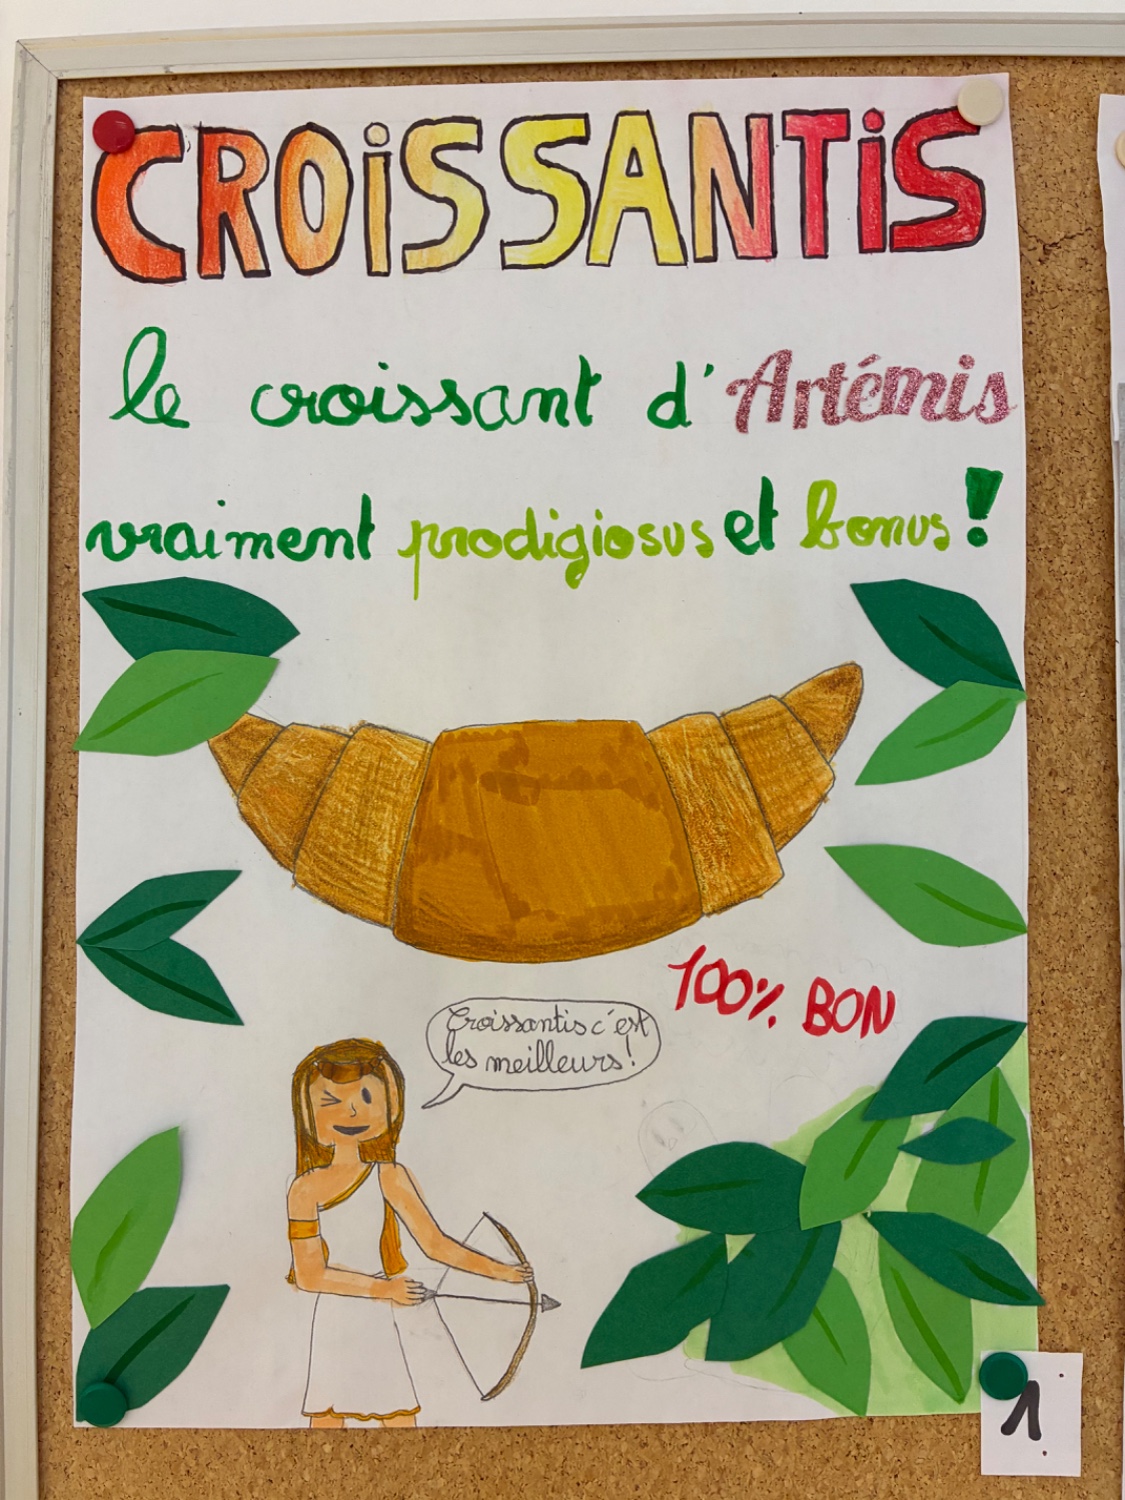 CROiSSANTiS
le croissant d'Artémis
vraiment prodigiosus et bonus !
100% BON
Croissantis c'est
les meilleurs !
1